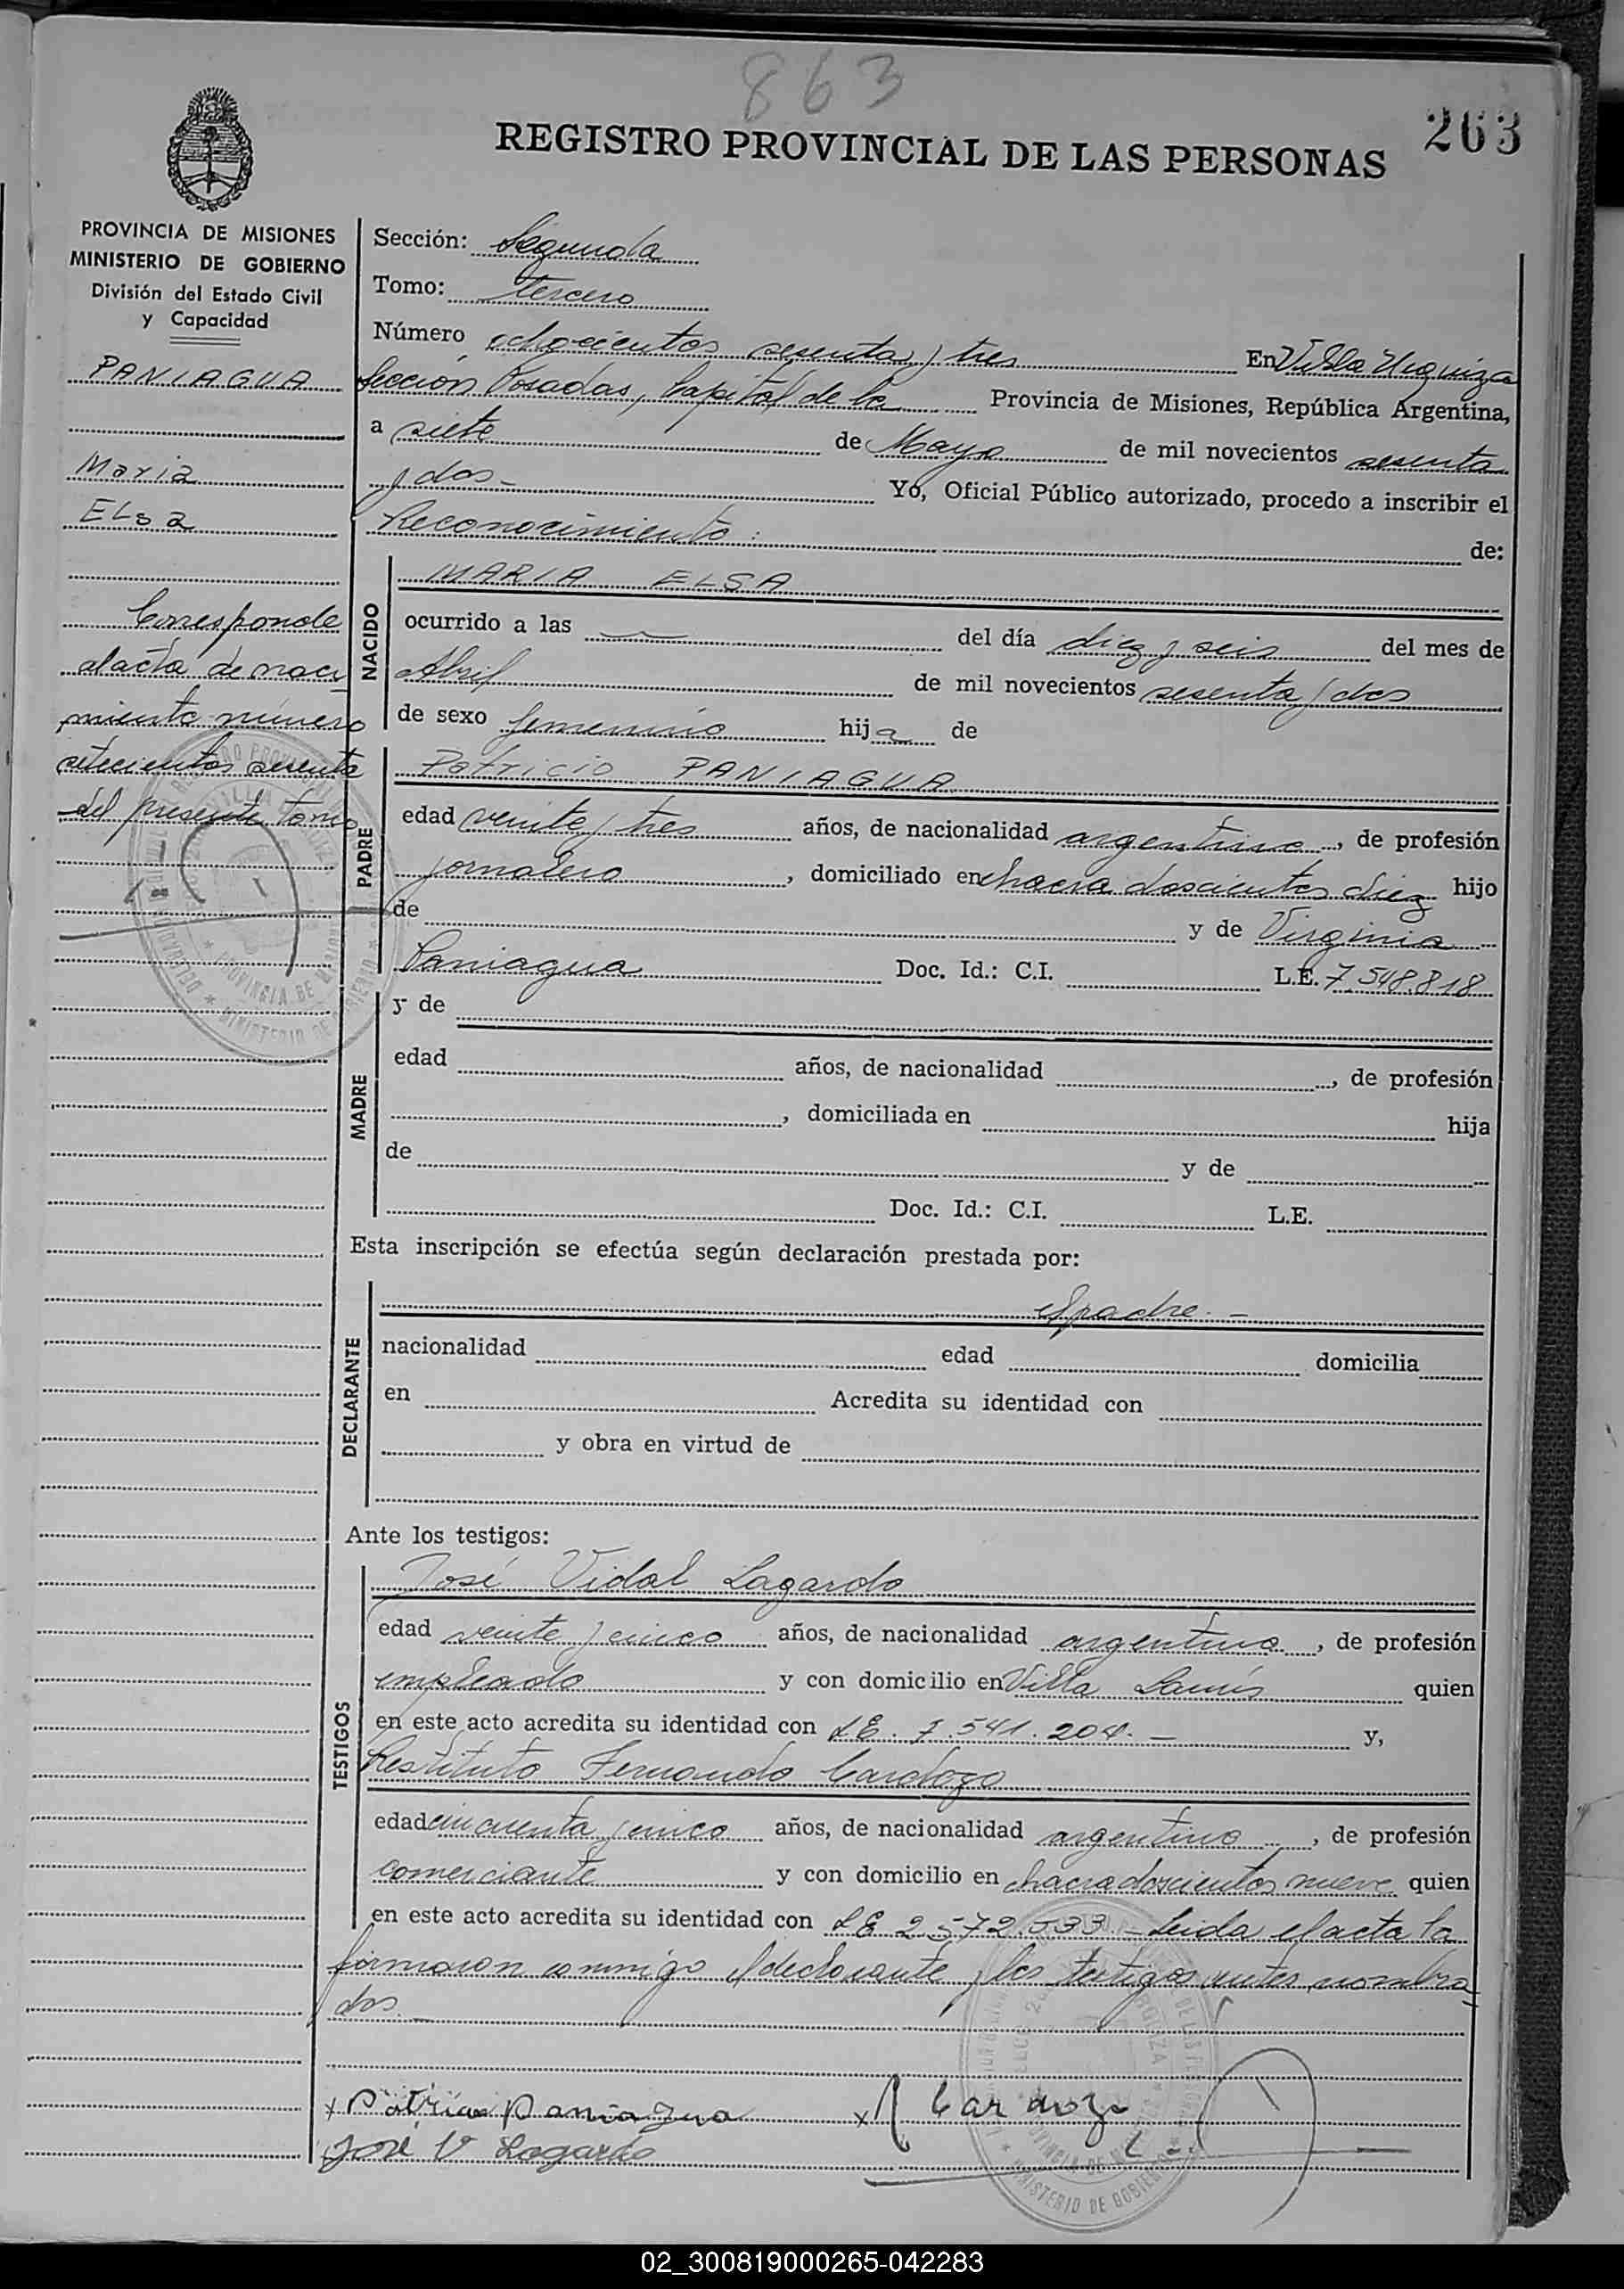 863
263
REGISTRO PROVINCIAL DE LAS PERSONAS
PROVINCIA DE MISIONES
MINISTERIO DE GOBIERNO
División del Estado Civil
y Capacidad
PANIAGUA
Maria
ELsa
Corresponde
al acta de naci
miento número
setecientos sesenta
del presente tomo
Sección: Segunda
Tomo: tercero
Número ochocientos sesenta y tres En Villa Urquiza
Sección Posadas, Capital de la Provincia de Misiones, República Argentina,
a siete de Mayo de mil novecientos sesenta
y dos - Yo, Oficial Público autorizado, procedo a inscribir el
Reconocimiento: de:
NACIDO
MARIA ELSA
ocurrido a las — del día diez y seis del mes de
Abril de mil novecientos sesenta y dos
de sexo femenino hija de
PADRE
Patricio PANIAGUA
edad veinte y tres años, de nacionalidad argentina, de profesión
jornalero, domiciliado en chacra doscientos diez hijo
de y de Virginia
Paniagua Doc. Id.: C.I. L.E. 7.548.818
MADRE
y de
edad años, de nacionalidad , de profesión
, domiciliada en hija
de y de
Doc. Id.: C.I. L.E.
Esta inscripción se efectúa según declaración prestada por:
DECLARANTE
el padre. -
nacionalidad edad domicilia
en Acredita su identidad con
y obra en virtud de
Ante los testigos:
TESTIGOS
José Vidal Lagardo
edad veinte y cinco años, de nacionalidad argentina, de profesión
empleado y con domicilio en Villa Lanús quien
en este acto acredita su identidad con L.E. 7.541.204. - y,
Restituto Fernando Cardozo
edad cincuenta y cinco años, de nacionalidad argentino, de profesión
comerciante y con domicilio en chacra doscientos nueve quien
en este acto acredita su identidad con L.E. 2.572.533 - Leida el acta la
firmaron conmigo el declarante y los testigos antes nombra
dos. -
x Patricio Paniagua x R Cardozo
José V Lagardo
02_300819000265-042283